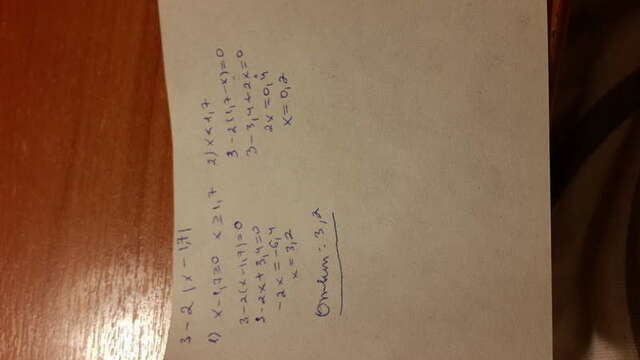 3 - 2 |x - 1,7|
1) x - 1,7 ≥ 0   x ≥ 1,7
3 - 2(x - 1,7) = 0
3 - 2x + 3,4 = 0
-2x = -6,4
x = 3,2
2) x < 1,7
3 - 2(1,7 - x) = 0
3 - 3,4 + 2x = 0
2x = 0,4
x = 0,2
Ответ: 3,2